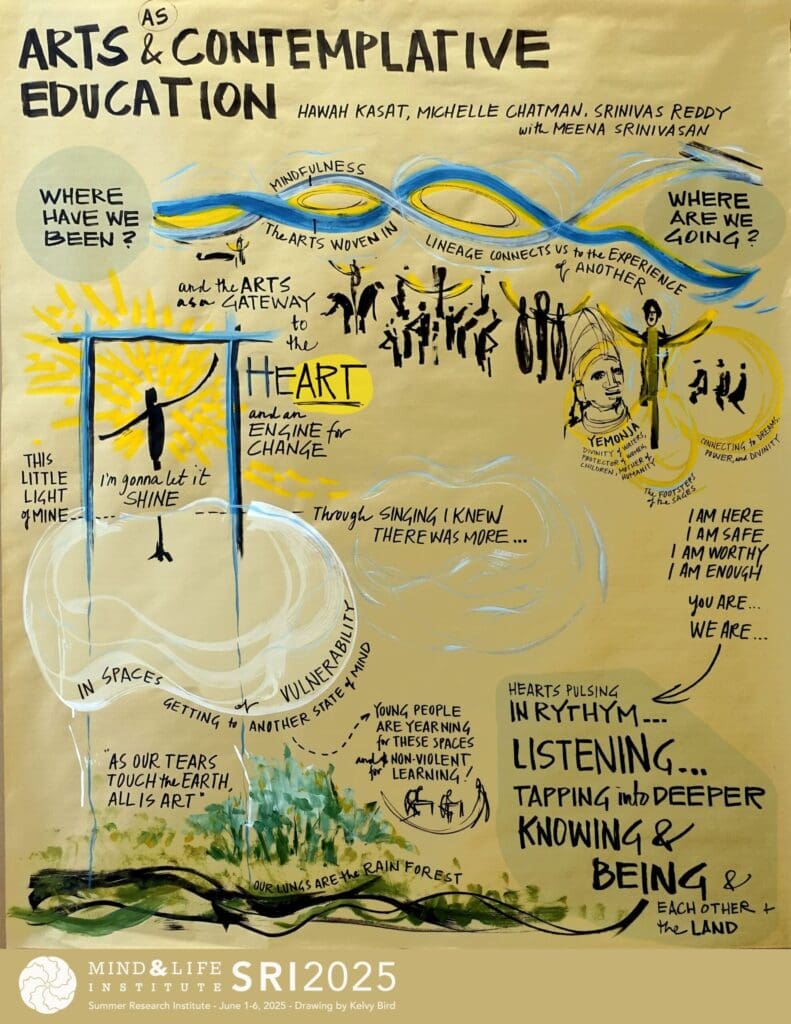 AS
ARTS & CONTEMPLATIVE
EDUCATION
HAWAH KASAT, MICHELLE CHATMAN, SRINIVAS REDDY
with MEENA SRINIVASAN
WHERE
HAVE WE
BEEN?
MINDFULNESS
The ARTS WOVEN IN
LINEAGE CONNECTS US to the EXPERIENCE
of ANOTHER
WHERE
ARE WE
GOING?
and the ARTS
as a GATEWAY
to
the
HEART
and an
ENGINE for
CHANGE
YEMONJA
DIVINITY of WATERS,
PROTECTOR of WOMEN,
CHILDREN, MOTHER of
HUMANITY
CONNECTING to DREAMS,
POWER, and DIVINITY
The FOOTSTEPS
of the SAGES
THIS
LITTLE
LIGHT
of MINE
I'm gonna let it
SHINE
Through SINGING I KNEW
THERE WAS MORE...
I AM HERE
I AM SAFE
I AM WORTHY
I AM ENOUGH
YOU ARE...
WE ARE...
IN SPACES of VULNERABILITY
GETTING to ANOTHER STATE of MIND
YOUNG PEOPLE
ARE YEARNING
for THESE SPACES
and NON-VIOLENT
for LEARNING!
"AS OUR TEARS
TOUCH the EARTH,
ALL IS ART"
HEARTS PULSING
IN RYTHYM...
LISTENING...
TAPPING into DEEPER
KNOWING &
BEING &
EACH OTHER +
the LAND
OUR LUNGS ARE the RAIN FOREST
MIND & LIFE
INSTITUTE
SRI2025
Summer Research Institute - June 1-6, 2025 - Drawing by Kelvy Bird